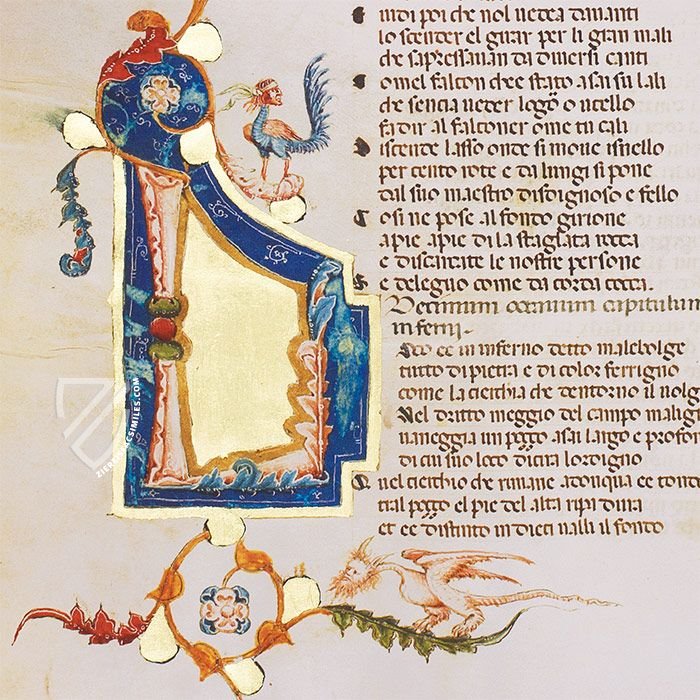 E uidi poi che nol uedea dauanti
lo scender el girar per li gran mali
che sapressauan da diuersi canti
Comel falcon chee stato assai su lali
che sencia ueder logoro o ucello
fa dir al falconer ome tu cali
Discende lasso onde si moue isnello
per cento rote e da lungi si pone
dal suo maestro disdignoso e fello
Cosi ne pose al fondo girione
a pie a pie di la stagliata rocca
e discarcate le nostre persone
Se deleguo come da corda cocca.
Decimum octauum capitulum
inferni.
co ee in inferno detto malebolge
tutto di pietra e di color ferrigno
come la cierchia che dentorno il uolge
Nel dritto meggio del campo malig
uaneggia un poggo asai largo e profon
di cui suo loco dicira lordigno
Quel cierchio che rimane adonqua ee tondo
tral poggo el pie del alta ripa dura
et ee distinto in dieci ualli il fondo
ZIEREIS FACSIMILES.COM